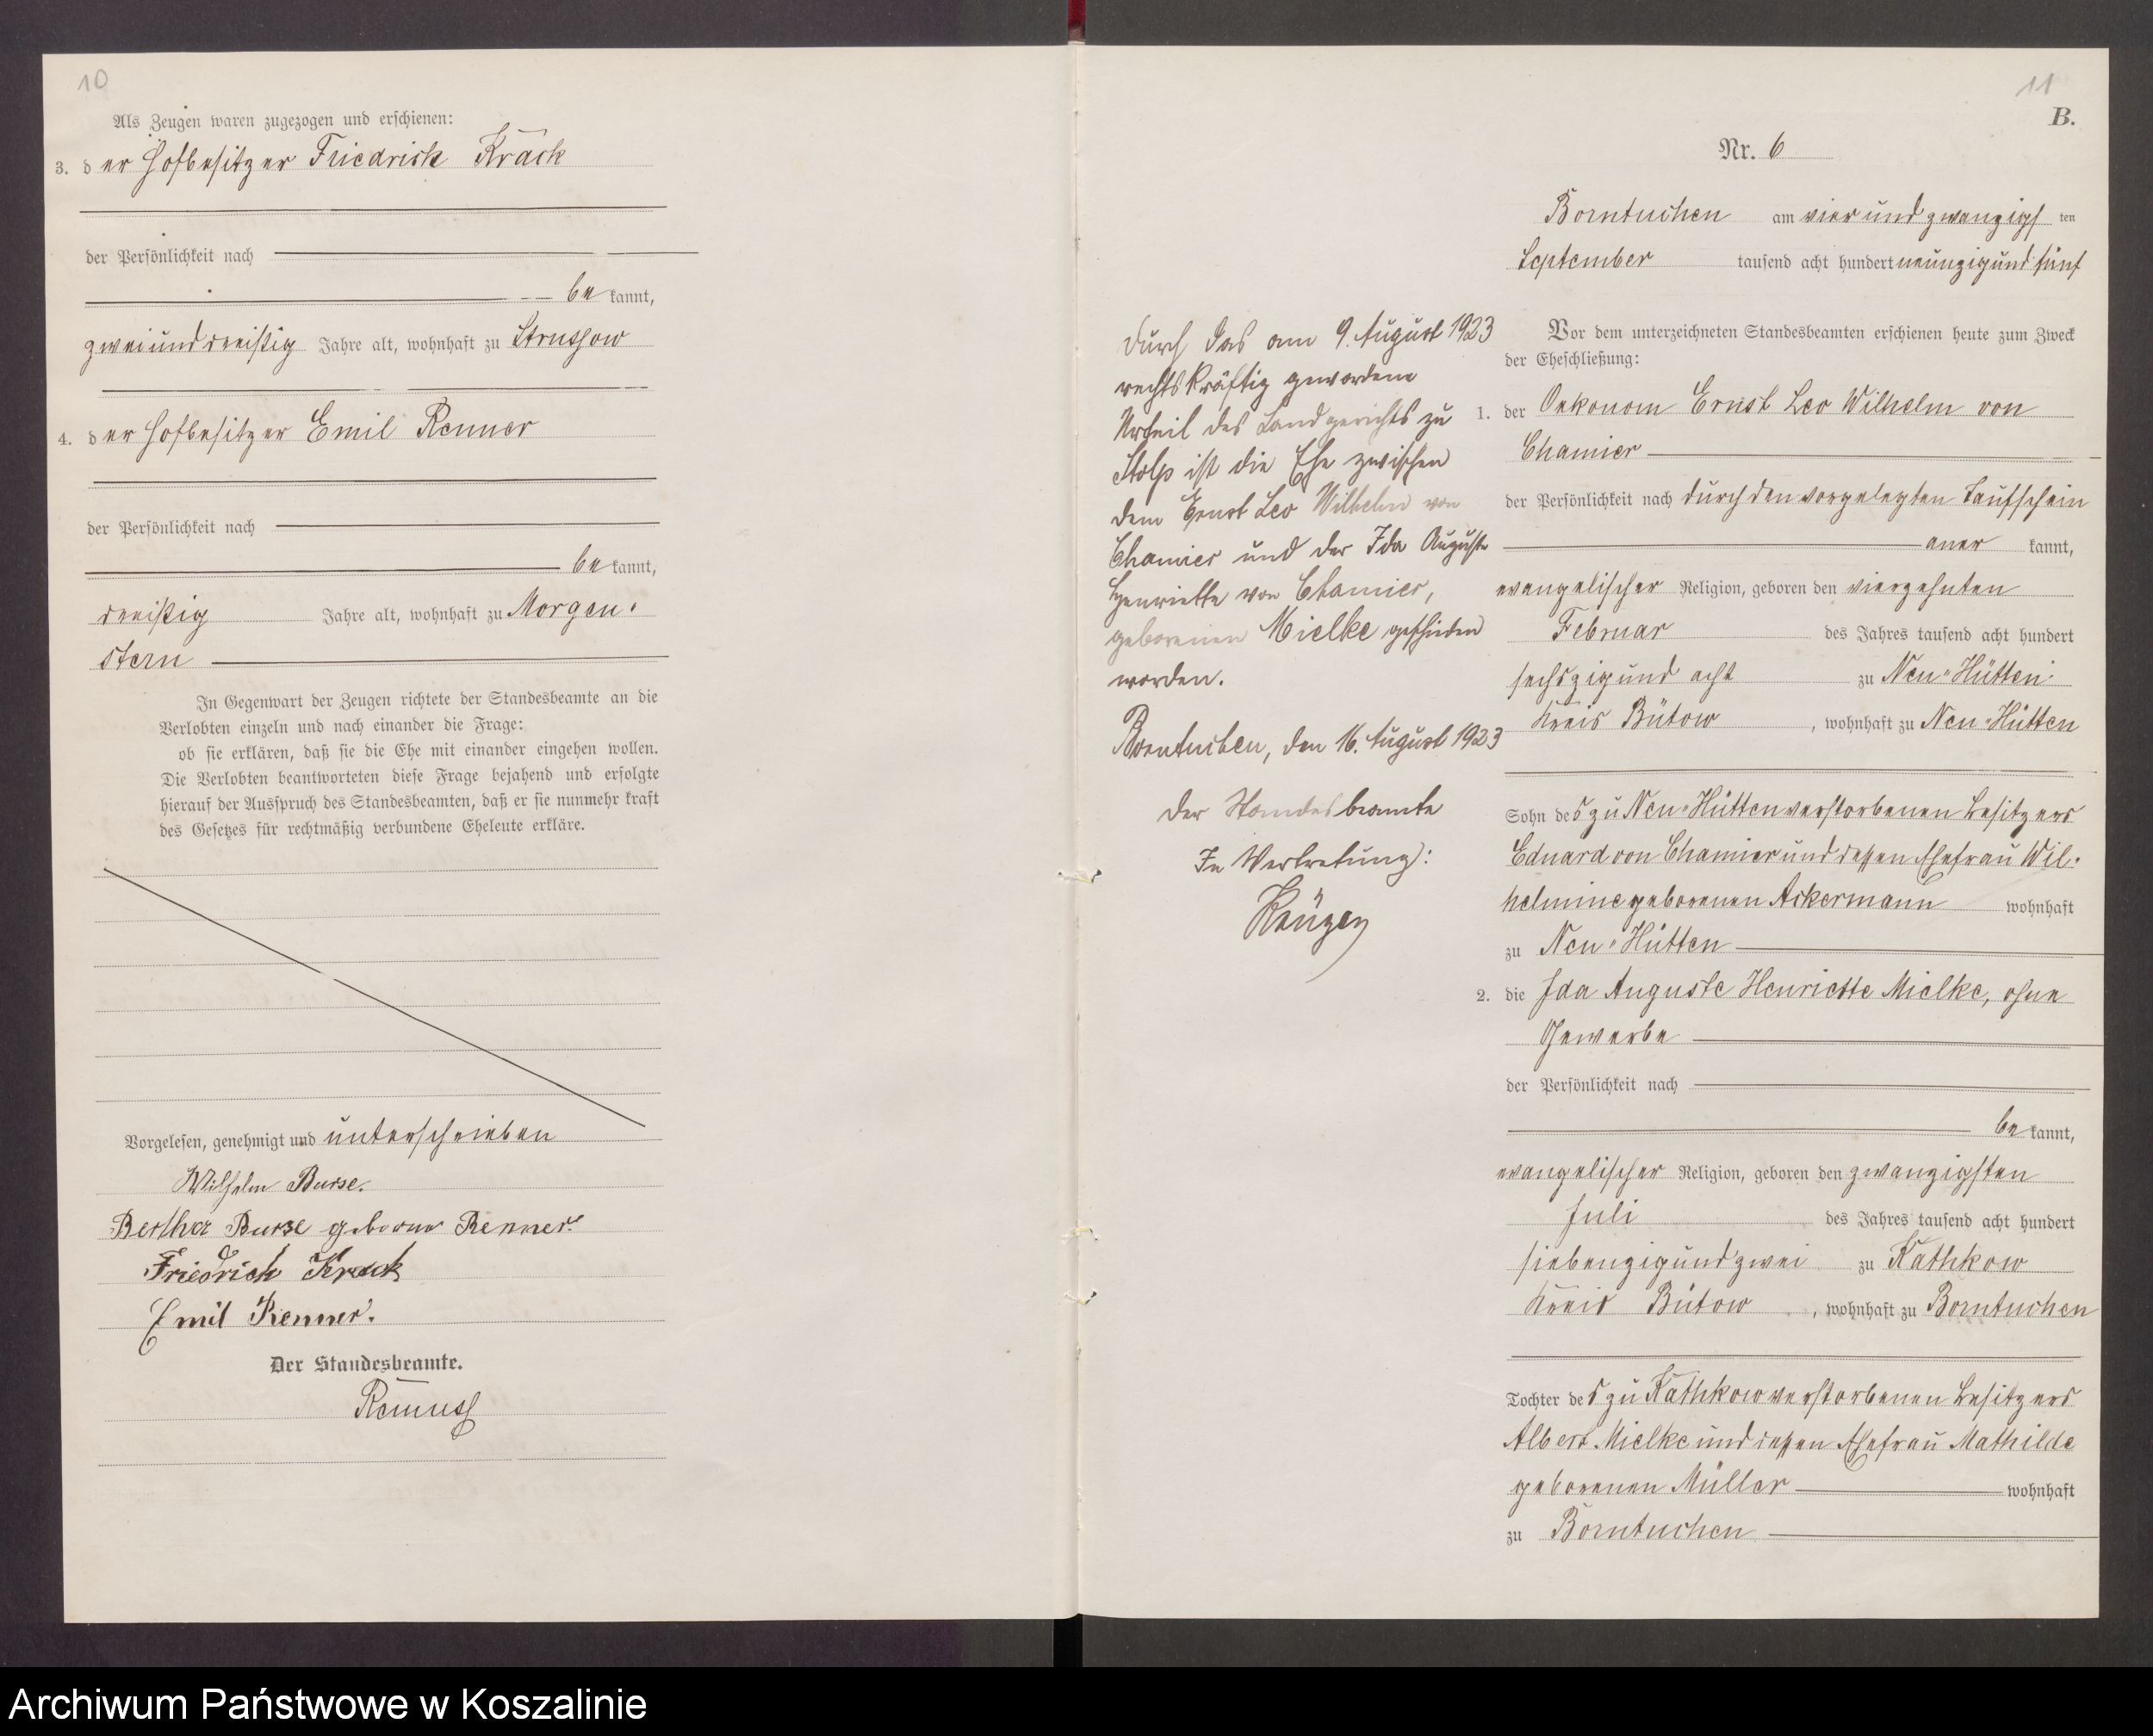 10
Als Zeugen waren zugezogen und erschienen:
3. der Hofbesitzer Friedrich Krack
der Persönlichkeit nach
bekannt,
zweiunddreißig Jahre alt, wohnhaft zu Strussow
4. der Hofbesitzer Emil Renner
der Persönlichkeit nach
bekannt,
dreißig Jahre alt, wohnhaft zu Morgen-
stern
In Gegenwart der Zeugen richtete der Standesbeamte an die
Verlobten einzeln und nach einander die Frage:
ob sie erklären, daß sie die Ehe mit einander eingehen wollen.
Die Verlobten beantworteten diese Frage bejahend und erfolgte
hierauf der Ausspruch des Standesbeamten, daß er sie nunmehr kraft
des Gesetzes für rechtmäßig verbundene Eheleute erkläre.
Vorgelesen, genehmigt und unterschrieben
Wilhelm Burse.
Bertha Burse geborne Renner.
Friedrich Krack
Emil Renner.
Der Standesbeamte.
Remuss
11
B.
Nr. 6
Borntuchen am vierundzwanzigsten
September tausend acht hundert neunzigund fünf
Vor dem unterzeichneten Standesbeamten erschienen heute zum Zweck
der Eheschließung:
1. der Oekonom Ernst Leo Wilhelm von
Chamier
der Persönlichkeit nach durch den vorgelegten Taufschein
anerkannt,
evangelischer Religion, geboren den vierzehnten
Februar des Jahres tausend acht hundert
sechszigund acht zu Neu-Hütten
Kreis Bütow, wohnhaft zu Neu-Hütten
Sohn des zu Neu-Hütten verstorbenen Besitzers
Eduard von Chamier und dessen Ehefrau Wil-
helmine geborenen Ackermann wohnhaft
zu Neu-Hütten
2. die Ida Auguste Henriette Mielke, ohne
Gewerbe
der Persönlichkeit nach
bekannt,
evangelischer Religion, geboren den zwanzigsten
Juli des Jahres tausend acht hundert
siebenzigund zwei zu Kathkow
Kreis Bütow, wohnhaft zu Borntuchen
Tochter des zu Kathkow verstorbenen Besitzers
Albert Mielke und dessen Ehefrau Mathilde
geborenen Müller wohnhaft
zu Borntuchen
Durch das am 9. August 1923
rechtskräftig gewordene
Urteil des Landgerichts zu
Stolp ist die Ehe zwischen
dem Ernst Leo Wilhelm von
Chamier und der Ida Auguste
Henriette von Chamier,
geborenen Mielke geschieden
worden.
Borntuchen, den 16. August 1923
Der Standesbeamte
In Vertretung:
Archiwum Państwowe w Koszalinie